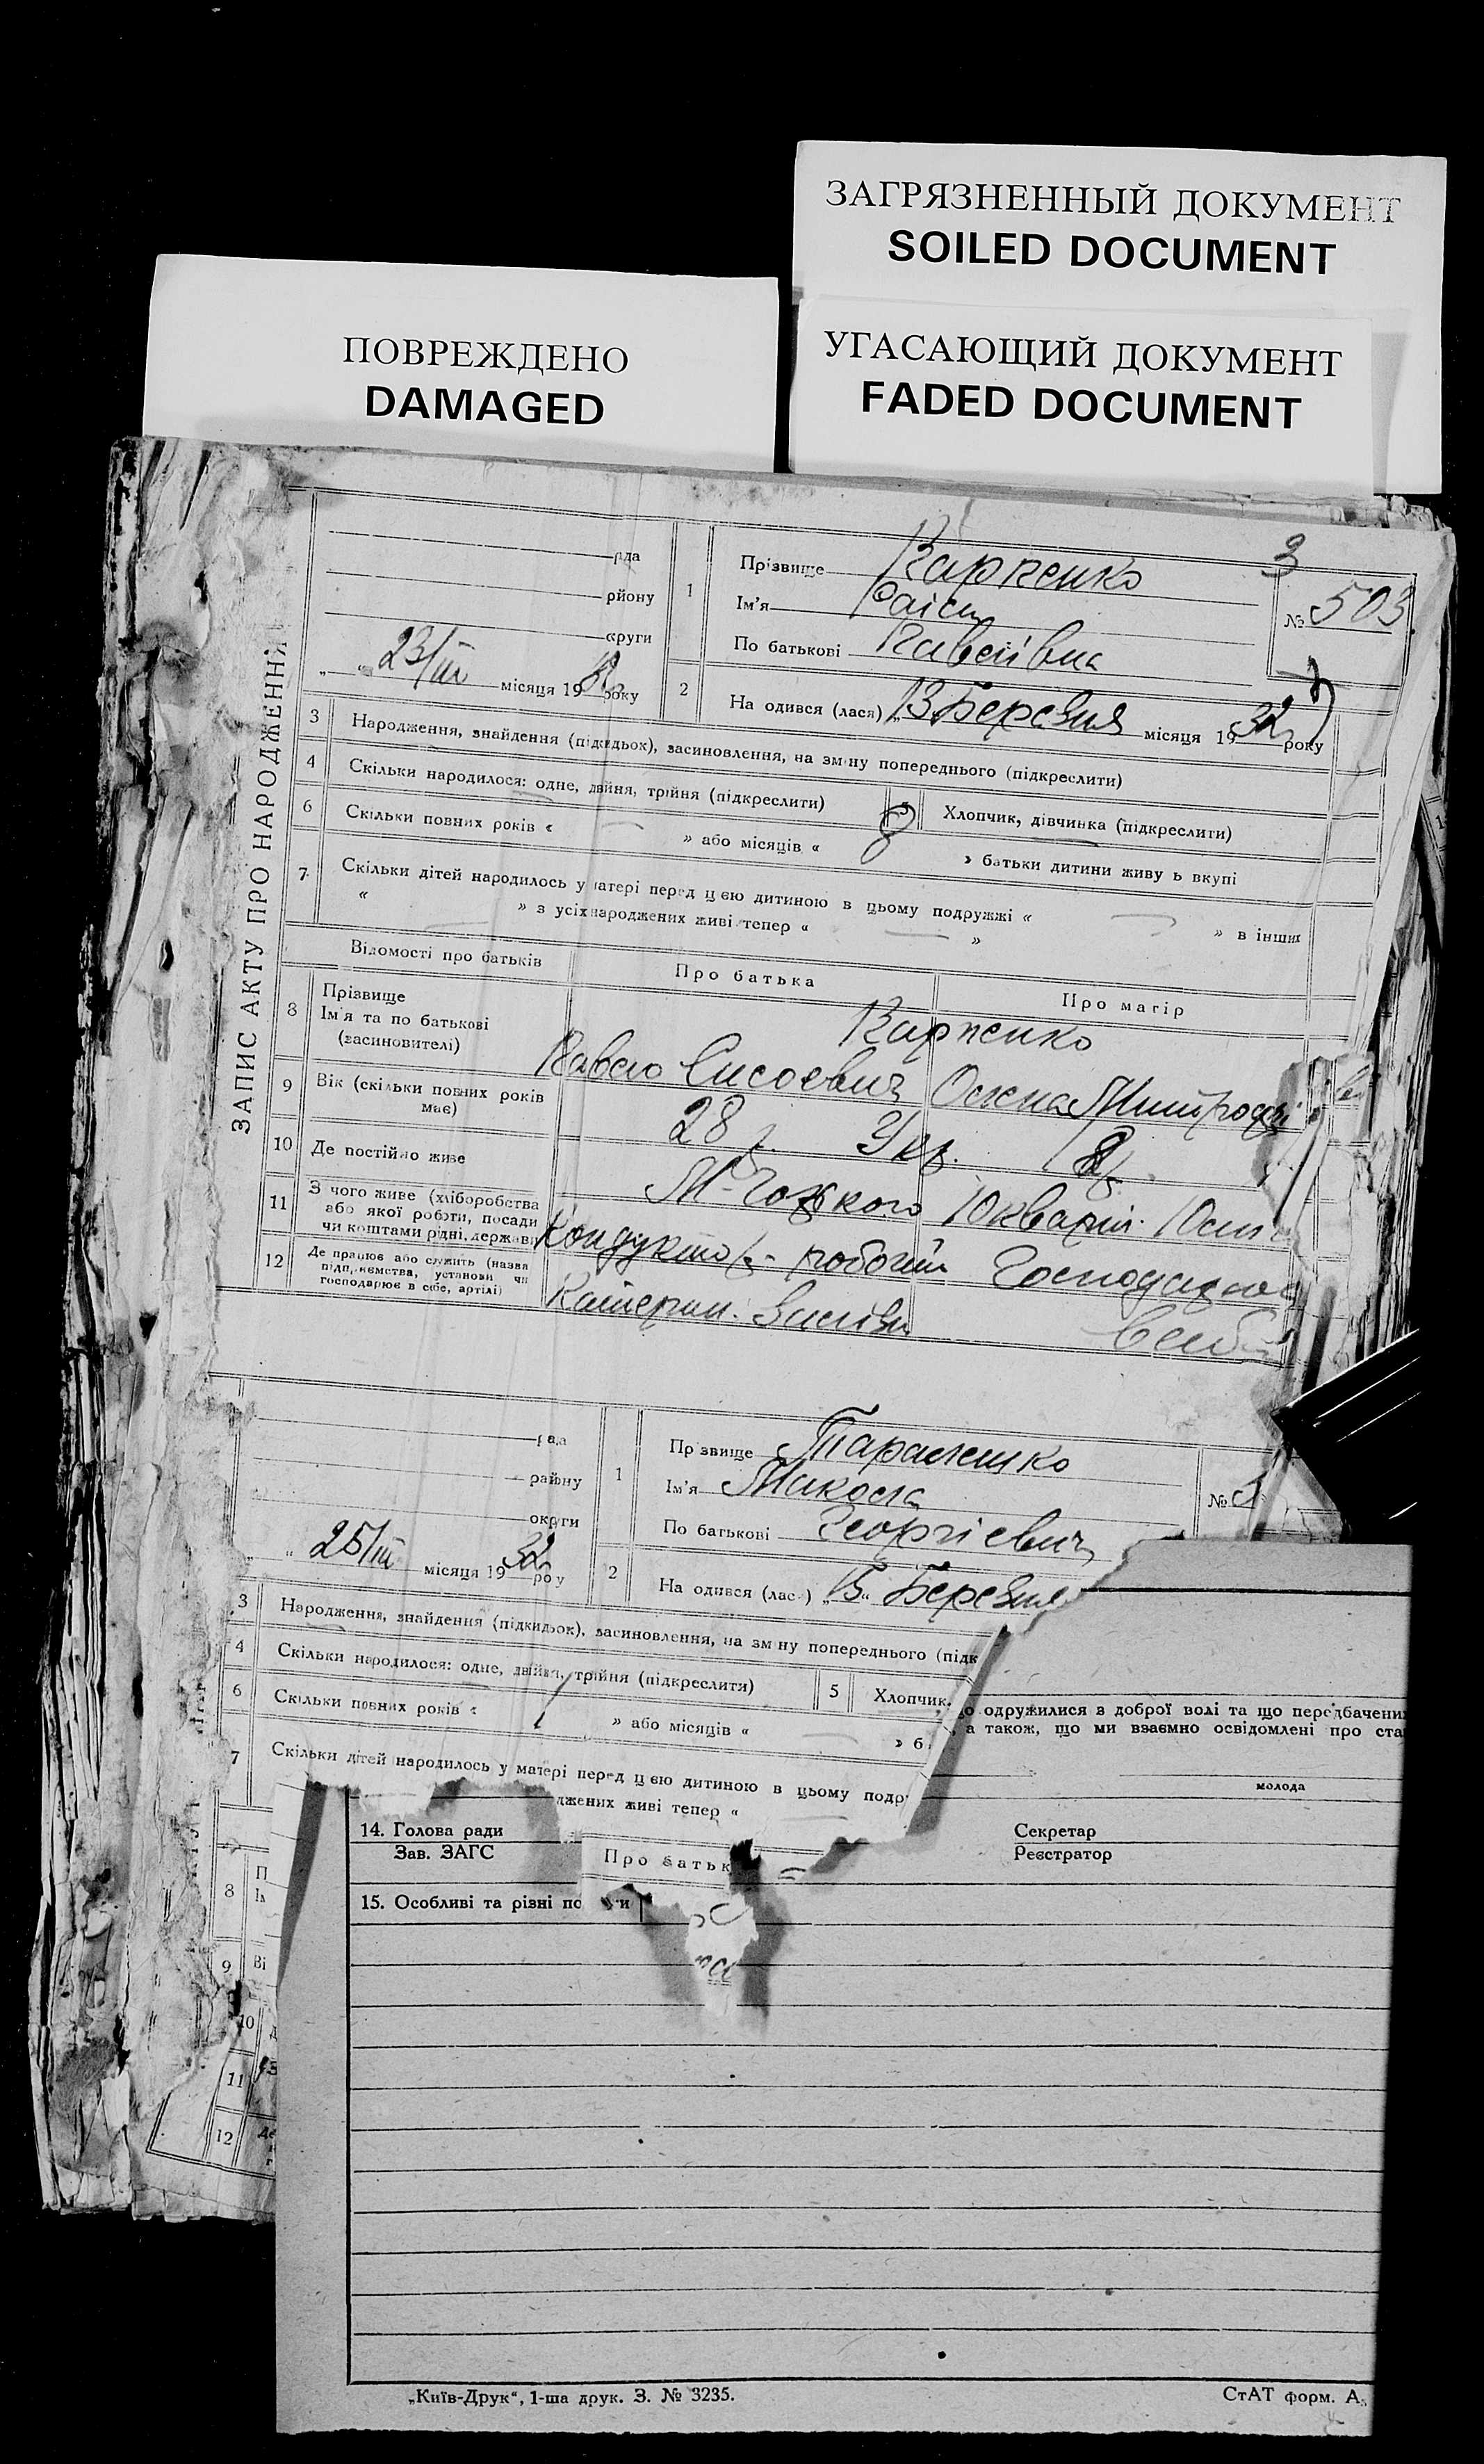 ЗАГРЯЗНЕННЫЙ ДОКУМЕНТ
SOILED DOCUMENT
ПОВРЕЖДЕНО
DAMAGED
УГАСАЮЩИЙ ДОКУМЕНТ
FADED DOCUMENT
ЗАПИС АКТУ ПРО НАРОДЖЕННЯ
рада
району
округи
23/III місяця 1932 року
3
№ 503
1 Прізвище Карпенко
Ім'я Раїса
По батькові Павлівна
2 На одився (лася) 13 Березня місяця 1932 року
3 Народження, знайдення (підкидьок), засиновлення, на зміну попереднього (підкреслити)
4 Скільки народилося: одне, двійня, трійня (підкреслити)
Хлопчик, дівчинка (підкреслити)
6 Скільки повних років « » або місяців « » батьки дитини живу ь вкупі
7 Скільки дітей народилось у матері перед цією дитиною в цьому подружжі « » в інших
« » з усіх народжених живі тепер « »
Відомості про батьків Про батька Про матір
8 Прізвище
Ім'я та по батькові
(засиновителі)
Карпенко
Сисоевич
9 Вік (скільки повних років
має)
28 р. Укр.
10 Де постійно живе
М-Гозького
11 З чого живе (хліборобства
або якої роботи, посади
чи коштами рідні, держави
Кондуктор - робочий
12 Де працює або служить (назва
підприємства, установи чи
господарює в себе, артілі)
Катерин.
рада
району
округи
25/III місяця 1932 року
1 Пр звище
Ім'я Микола
По батькові Георгіевич
№
2 На одився (лас ) „15“ Березня
3 Народження, знайдення (підкидьок), засиновлення, на зм ну попереднього (підк
4 Скільки народилося: одне, двійня, трійня (підкреслити)
5 Хлопчик,
6 Скільки повних років « » або місяців « » б
7 Скільки дітей народилось у матері перед цією дитиною в цьому подр
джених живі тепер «
Про батьк
8 П
Ім
9 Ві
10 Д
11 З
12 Де
о одружилися з доброї волі та що передбачени
, а також, що ми взаємно освідомлені про ста
молода
14. Голова ради Секретар
Зав. ЗАГС Реєстратор
15. Особливі та різні по ки
„Київ-Друк“, 1-ша друк. З. № 3235. СтАТ форм. А